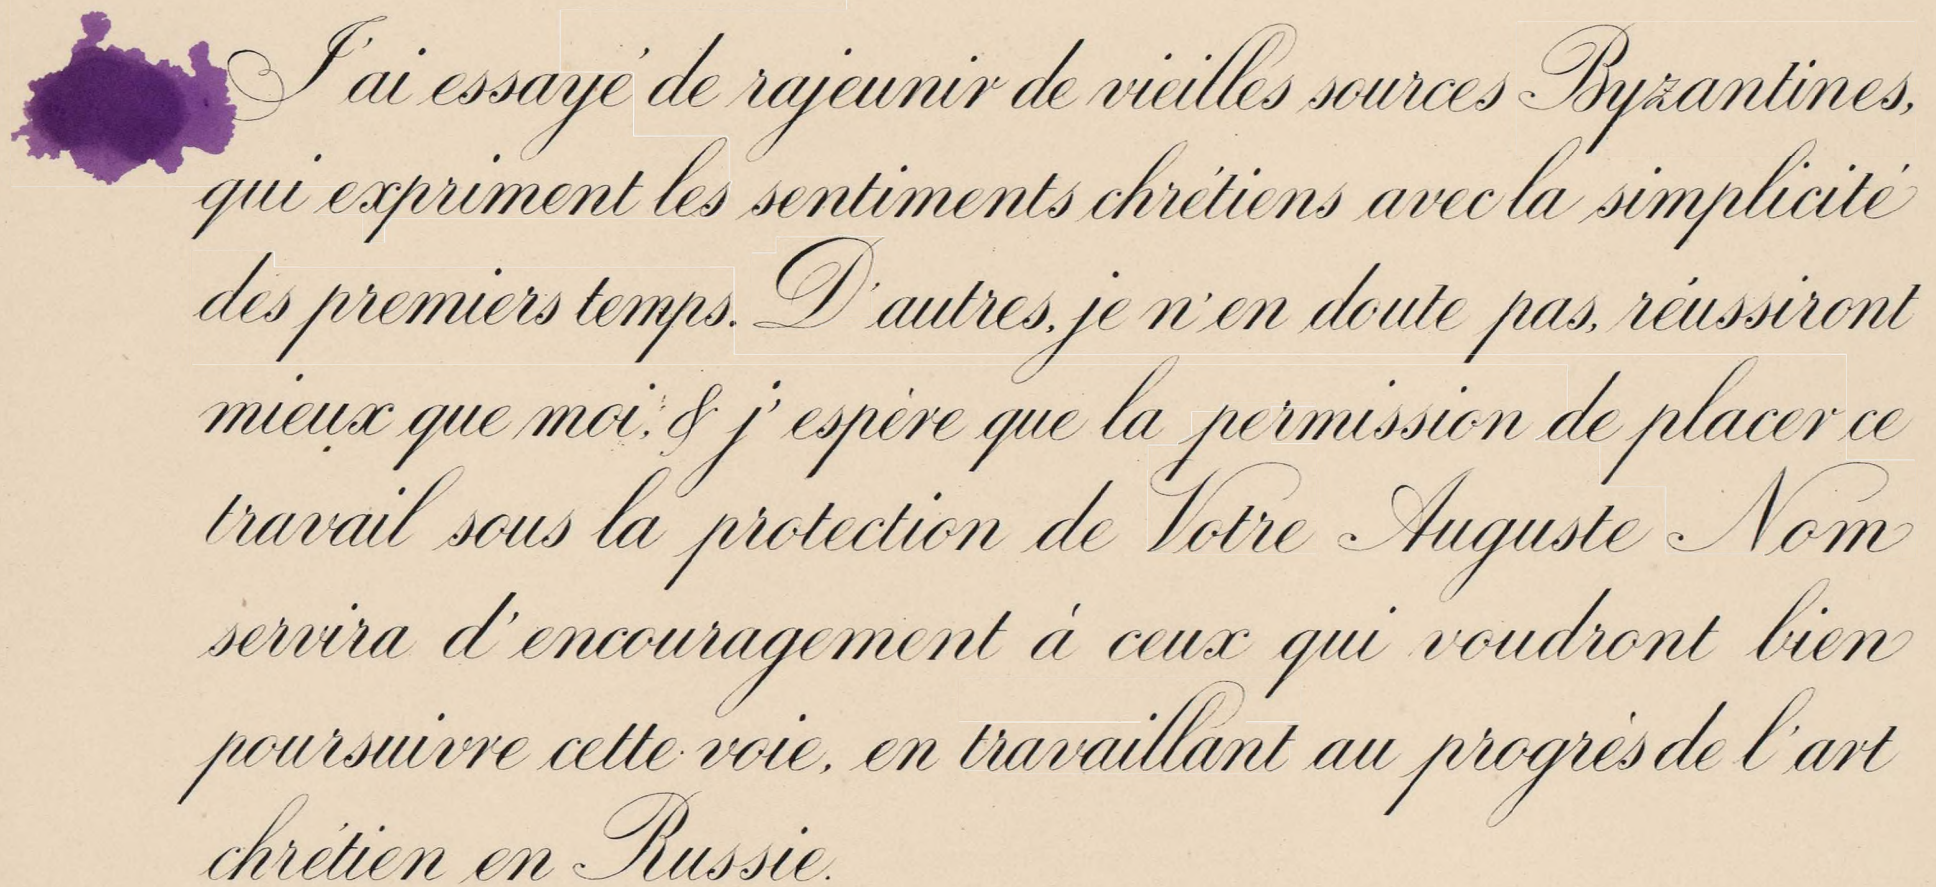 J'ai essayé de rajeunir de vieilles sources Byzantines,
qui expriment les sentiments chrétiens avec la simplicité
des premiers temps. D'autres, je n'en doute pas, réussiront
mieux que moi; & j'espère que la permission de placer ce
travail sous la protection de Votre Auguste Nom
servira d'encouragement à ceux qui voudront bien
poursuivre cette voie, en travaillant au progrès de l'art
chrétien en Russie.